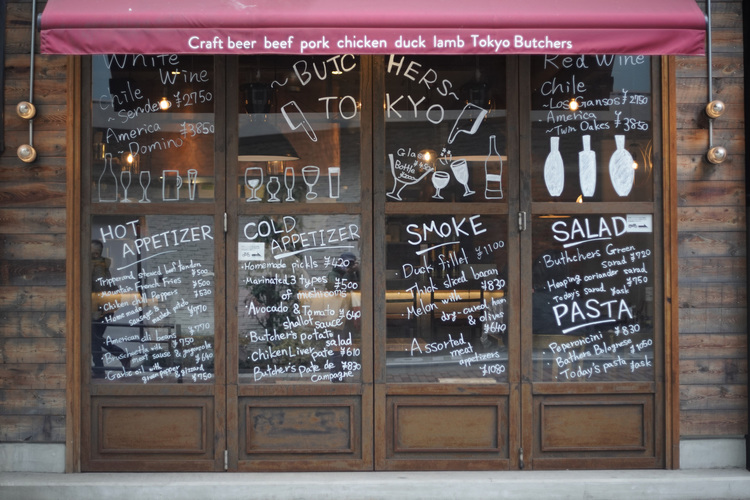 Craft beer beef pork chicken duck lamb Tokyo Butchers
White
Wine
Chile
~Sende ¥2750
America ¥3850
~Domino
~BUTCHERS~
TOKYO
Glass
Bottle
Red Wine
Chile
~Los Gansos ¥2750
America
~Twin Oakes ¥3850
HOT
APPETIZER
Tripe and stewed beef tendon ¥500
Mountain French Fries ¥500
Chicken chili Peppers ¥530
Home made
sausage ¥970
American all beans ¥770
Bruschetta with
meat sauce & gruyere ¥640
Garlic oil with
green pepper & gizzard ¥750
COLD
APPETIZER
Homemade pickls ¥420
Marinated 3 types
of mushrooms ¥500
Avocado & Tomato ¥640
shallot sauce
Butcher's potato
salad
Chiken Liver Pate ¥610
Butcher's Pate de ¥830
Campagne
SMOKE
Duck fillet ¥1100
Thick sliced bacon
¥830
Melon with
dry-cured ham
& olives
¥640
Assorted
meat
appetizers
¥1080
SALAD
Buthchers Green
sarad ¥720
Heaping coriander sarad
¥750
Today's sarad ¥ask
PASTA
Peperoncini ¥830
Bathers Bolognese ¥950
Today's pasta ¥ask